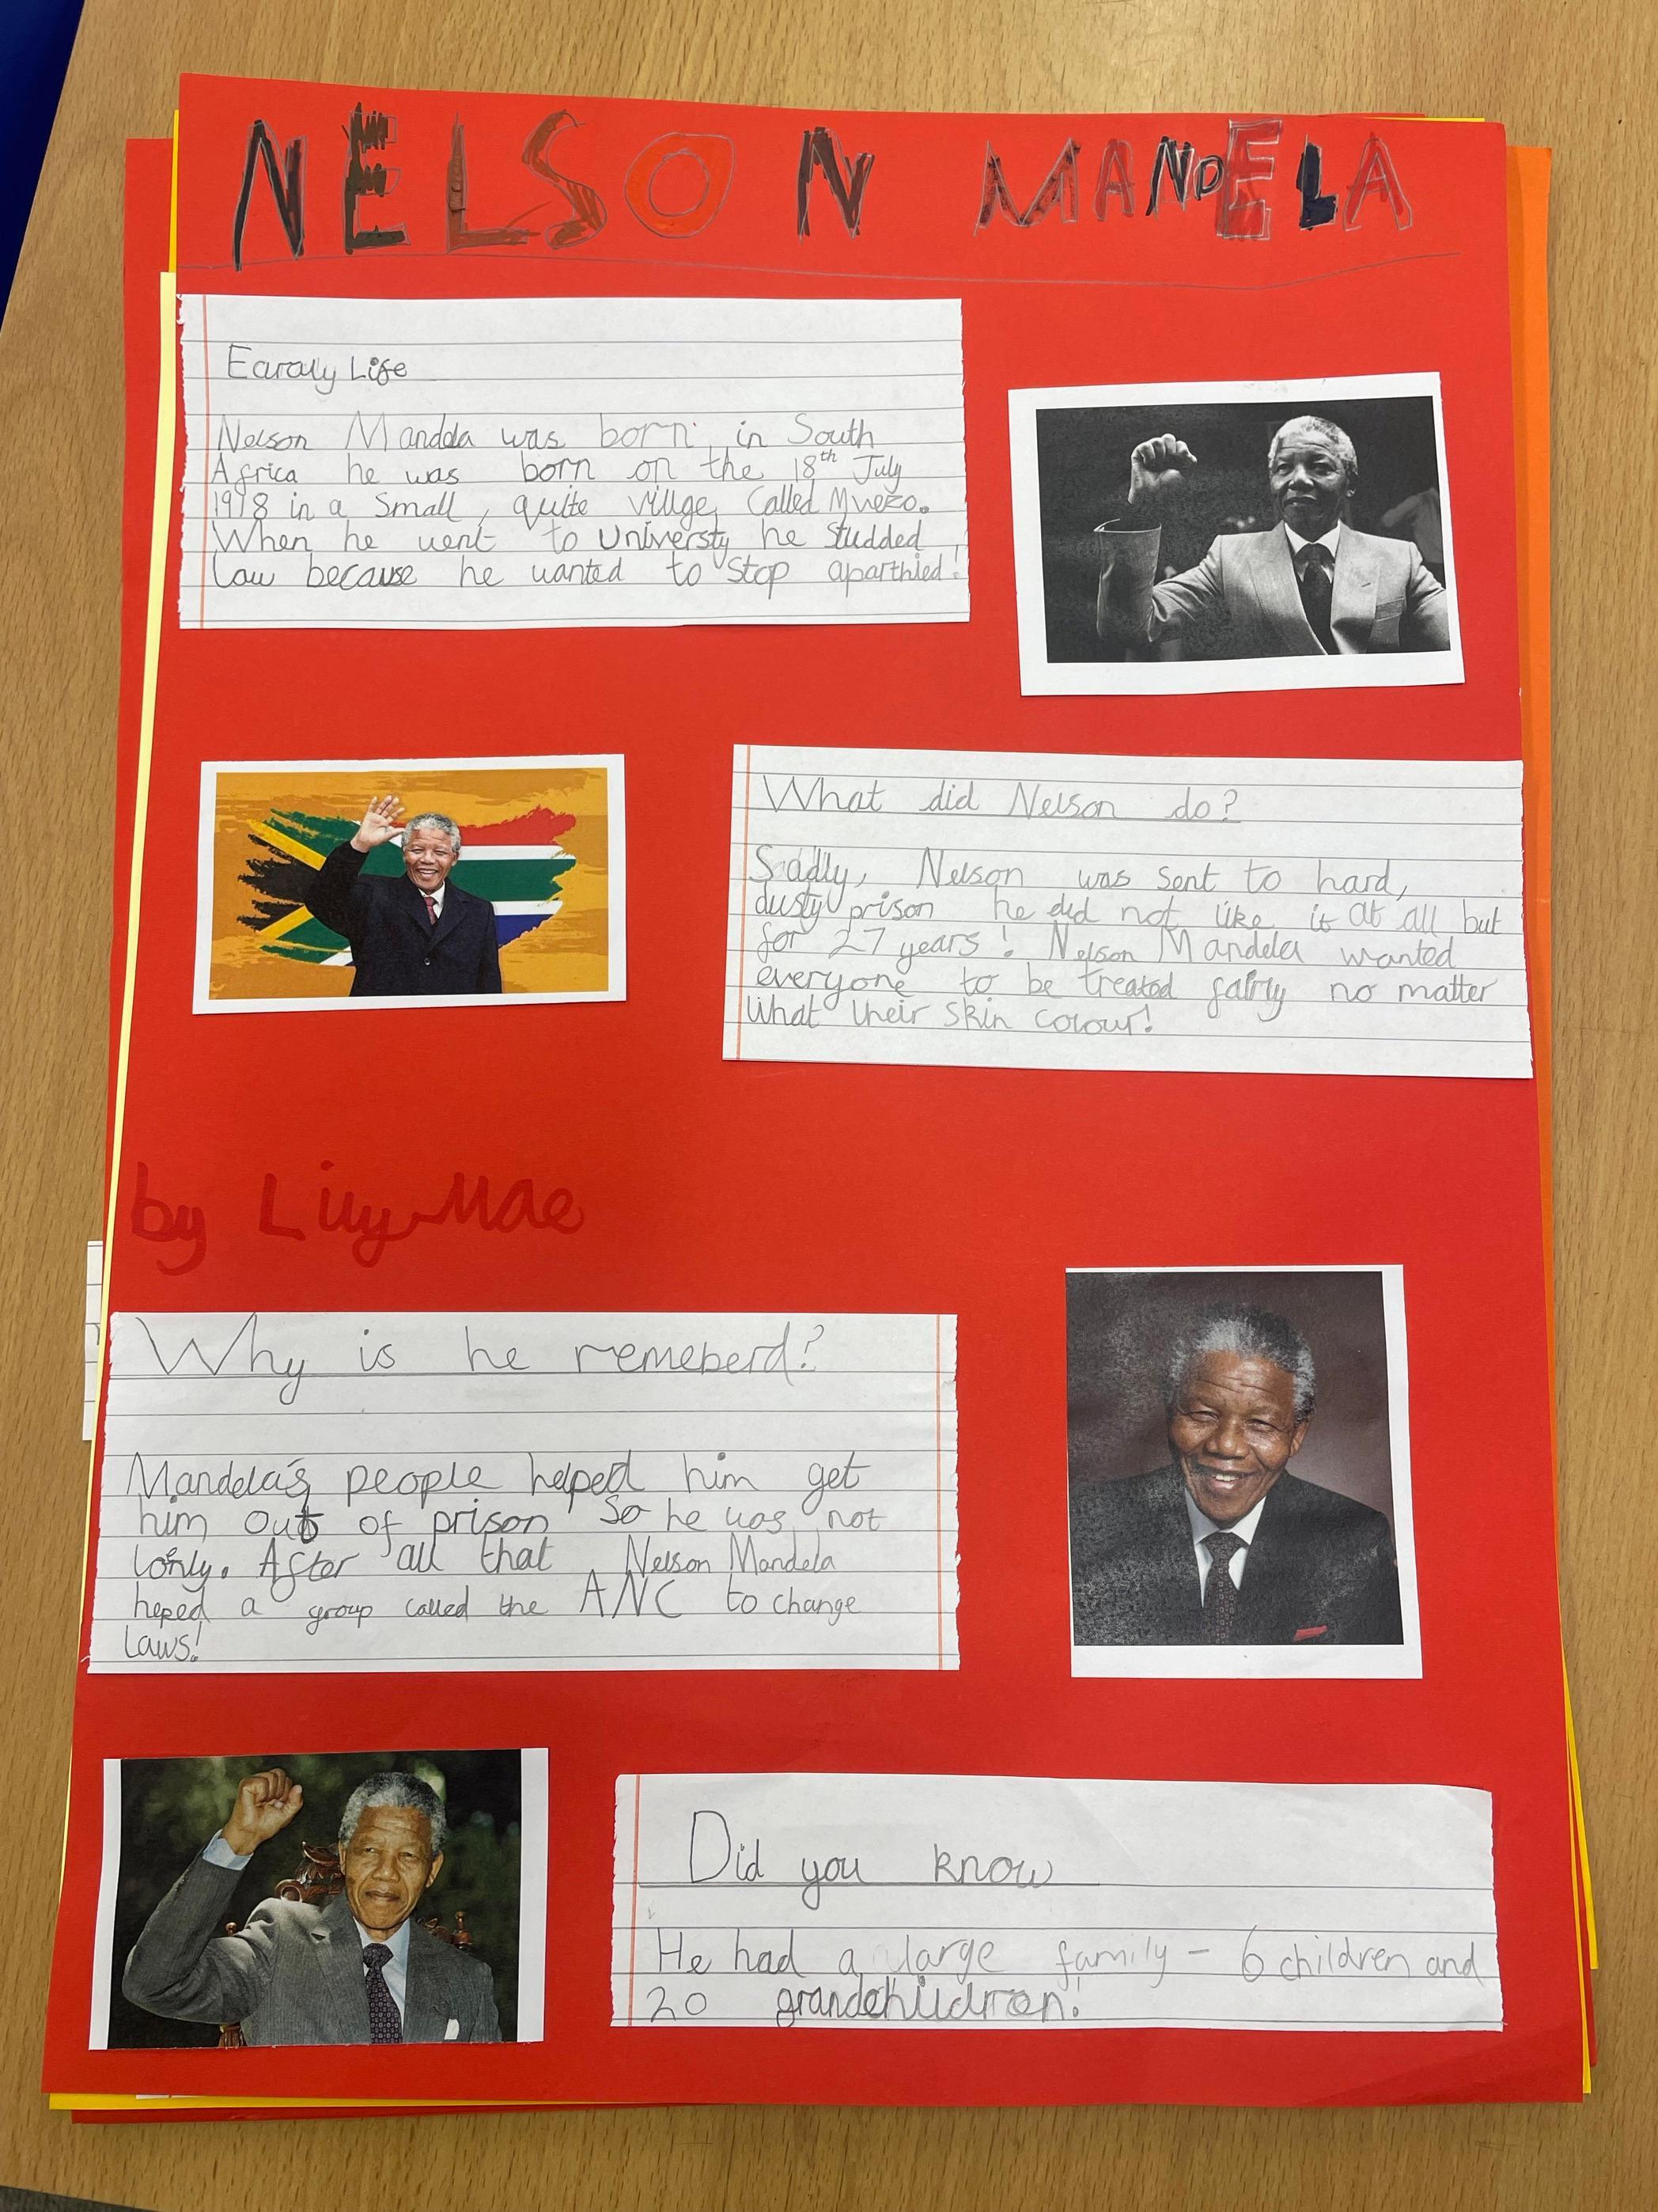 NELSON MANDELA
Earaly Life
Nelson Mandela was born in South
Africa he was born on the 18th July
1918 in a small, quite villge, called Mvezo.
When he went to Universty he studded
law because he wanted to stop aparthied!
What did Nelson do?
Sadly, Nelson was sent to hard,
dusty prison he did not like it at all but
for 27 years! Nelson Mandela wanted
everyone to be treated fairly no matter
what their skin colour!
by Lily-Mae
Why is he remeberd?
Mandela's people helped him get
him out of prison so he was not
lonly. After all that Nelson Mandela
heped a group called the ANC to change
laws!
Did you know
He had a large family - 6 children and
20 grandchildren!